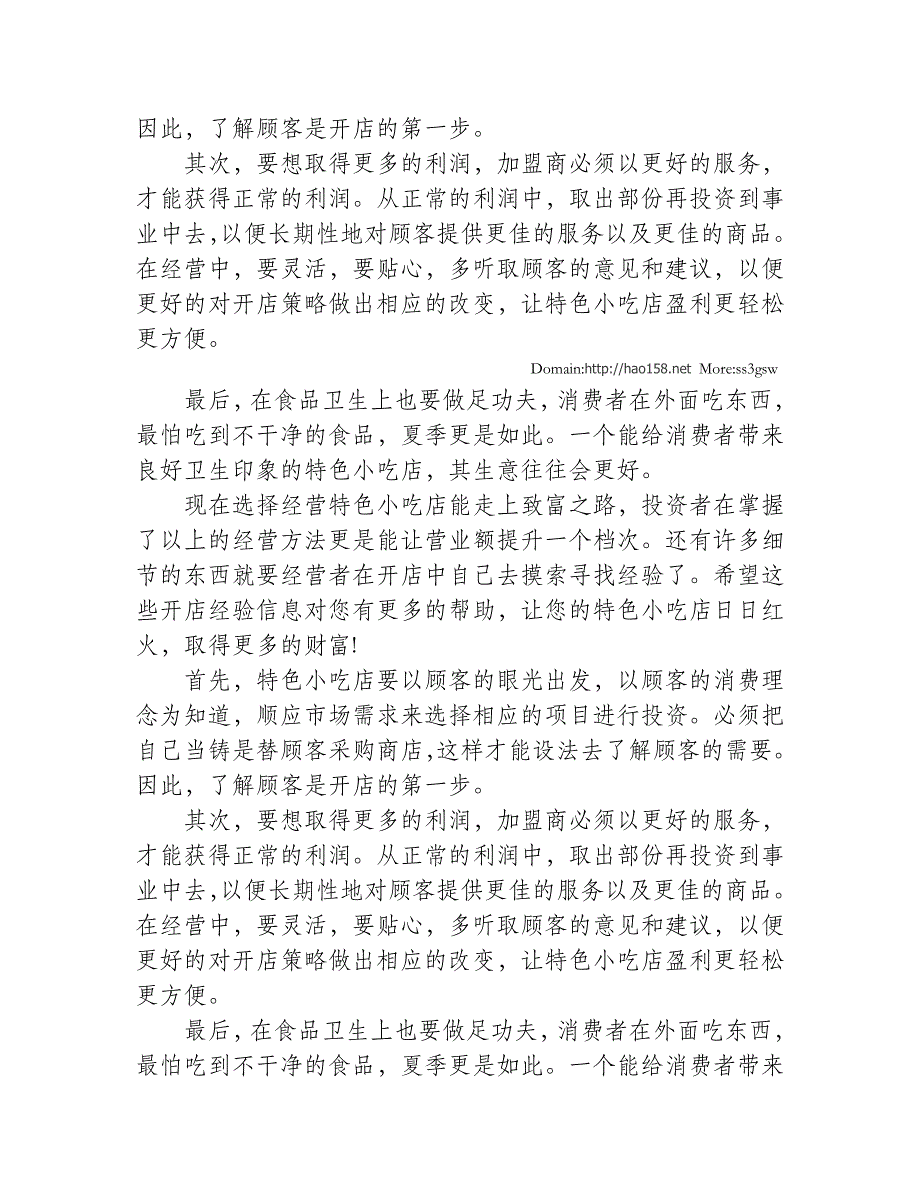 因此，了解顾客是开店的第一步。
其次，要想取得更多的利润，加盟商必须以更好的服务，
才能获得正常的利润。从正常的利润中，取出部份再投资到事
业中去,以便长期性地对顾客提供更佳的服务以及更佳的商品。
在经营中，要灵活，要贴心，多听取顾客的意见和建议，以便
更好的对开店策略做出相应的改变，让特色小吃店盈利更轻松
更方便。
Domain:http://hao158.net More:ss3gsw
最后，在食品卫生上也要做足功夫，消费者在外面吃东西，
最怕吃到不干净的食品，夏季更是如此。一个能给消费者带来
良好卫生印象的特色小吃店，其生意往往会更好。
现在选择经营特色小吃店能走上致富之路，投资者在掌握
了以上的经营方法更是能让营业额提升一个档次。还有许多细
节的东西就要经营者在开店中自己去摸索寻找经验了。希望这
些开店经验信息对您有更多的帮助，让您的特色小吃店日日红
火，取得更多的财富!
首先，特色小吃店要以顾客的眼光出发，以顾客的消费理
念为知道，顺应市场需求来选择相应的项目进行投资。必须把
自己当铸是替顾客采购商店,这样才能设法去了解顾客的需要。
因此，了解顾客是开店的第一步。
其次，要想取得更多的利润，加盟商必须以更好的服务，
才能获得正常的利润。从正常的利润中，取出部份再投资到事
业中去,以便长期性地对顾客提供更佳的服务以及更佳的商品。
在经营中，要灵活，要贴心，多听取顾客的意见和建议，以便
更好的对开店策略做出相应的改变，让特色小吃店盈利更轻松
更方便。
最后，在食品卫生上也要做足功夫，消费者在外面吃东西，
最怕吃到不干净的食品，夏季更是如此。一个能给消费者带来